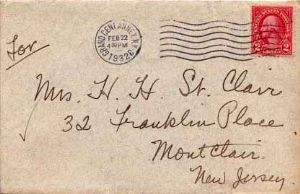 GRAND CENT. ANNEX, N.Y.
FEB 22
4 PM
1932
For
Mrs. H. H. St. Clair
32 Franklin Place
Montclair.
New Jersey.
2 2